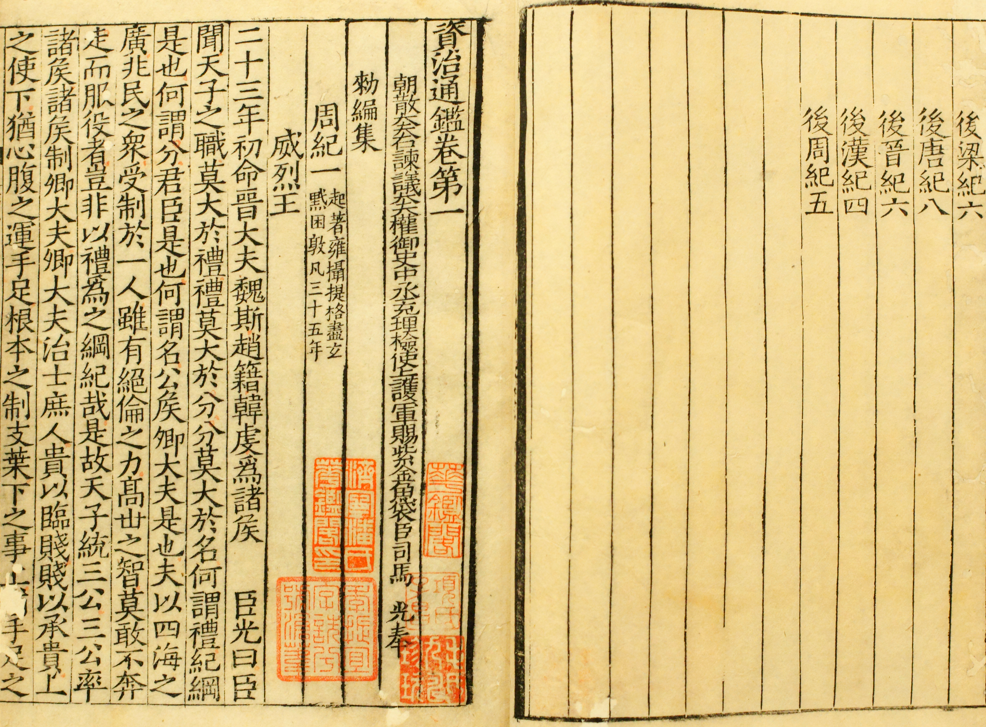 後梁紀六
後唐紀八
後晉紀六
後漢紀四
後周紀五
資治通鑑卷第一
朝散大夫右諫議大夫權御史中丞充理檢使上護軍賜紫金魚袋臣司馬 光奉
勑編集
周紀一
起著雍攝提格盡玄
黓困敦凡三十五年
威烈王
二十三年初命晉大夫魏斯趙籍韓虔爲諸矦 臣光曰臣
聞天子之職莫大於禮禮莫大於分分莫大於名何謂禮紀綱
是也何謂分君臣是也何謂名公矦卿大夫是也夫以四海之
廣兆民之衆受制於一人雖有絕倫之力髙世之智莫敢不奔
走而服役者豈非以禮爲之綱紀哉是故天子統三公三公率
諸矦諸矦制卿大夫卿大夫治士庶人貴以臨賤賤以承貴上
之使下猶心腹之運手足根本之制支葉下之事上手足之